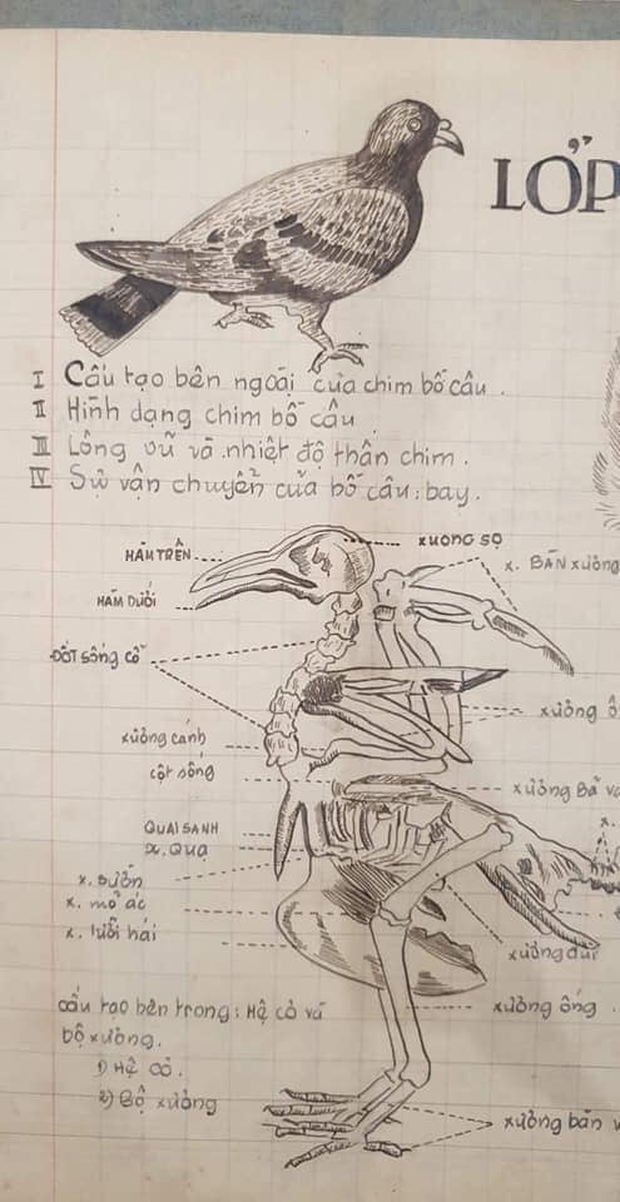 LỚP
I Cấu tạo bên ngoài của chim bồ câu.
II Hình dạng chim bồ câu
III Lông vũ và nhiệt độ thân chim.
IV Sự vận chuyển của bồ câu: bay.
HÀM TRÊN
xương sọ
x. BÀN xương
HÀM DƯỚI
ĐỐT sống cổ
xương cánh
xương
cột sống
xương Bả
QUAI SANH
x. QUẠ
x.
x. sườn
x. mỏ ác
x. lưỡi hái
xương đùi
cấu tạo bên trong: Hệ cơ và
xương ống
bộ xương.
1) Hệ cơ.
2) Bộ xương
xương bàn